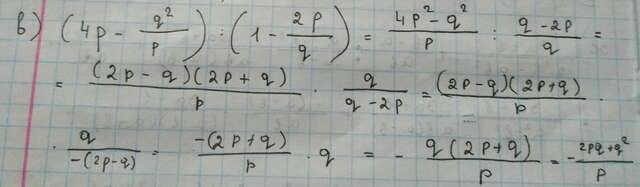 в) (4p - q²/p) : (1 - 2p/q) = (4p² - q²)/p : (q - 2p)/q =
= (2p - q)(2p + q)/p · q/(q - 2p) = (2p - q)(2p + q)/p ·
· q/-(2p - q) = -(2p + q)/p · q = - q(2p + q)/p = - (2pq + q²)/p